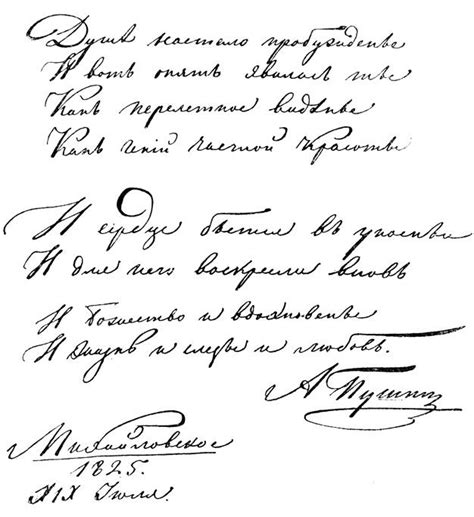 Душѣ настало пробужденье
И вотъ опять явилась ты
Какъ перелетное видѣнье
Какъ геній чистой красоты
И сердце бьется въ упоеньи
И для него воскресли вновь
И Божество и вдохновенье
И жизнь и слезы и любовь.
А Пушкин
Михайловское
1825.
XIX Июля.